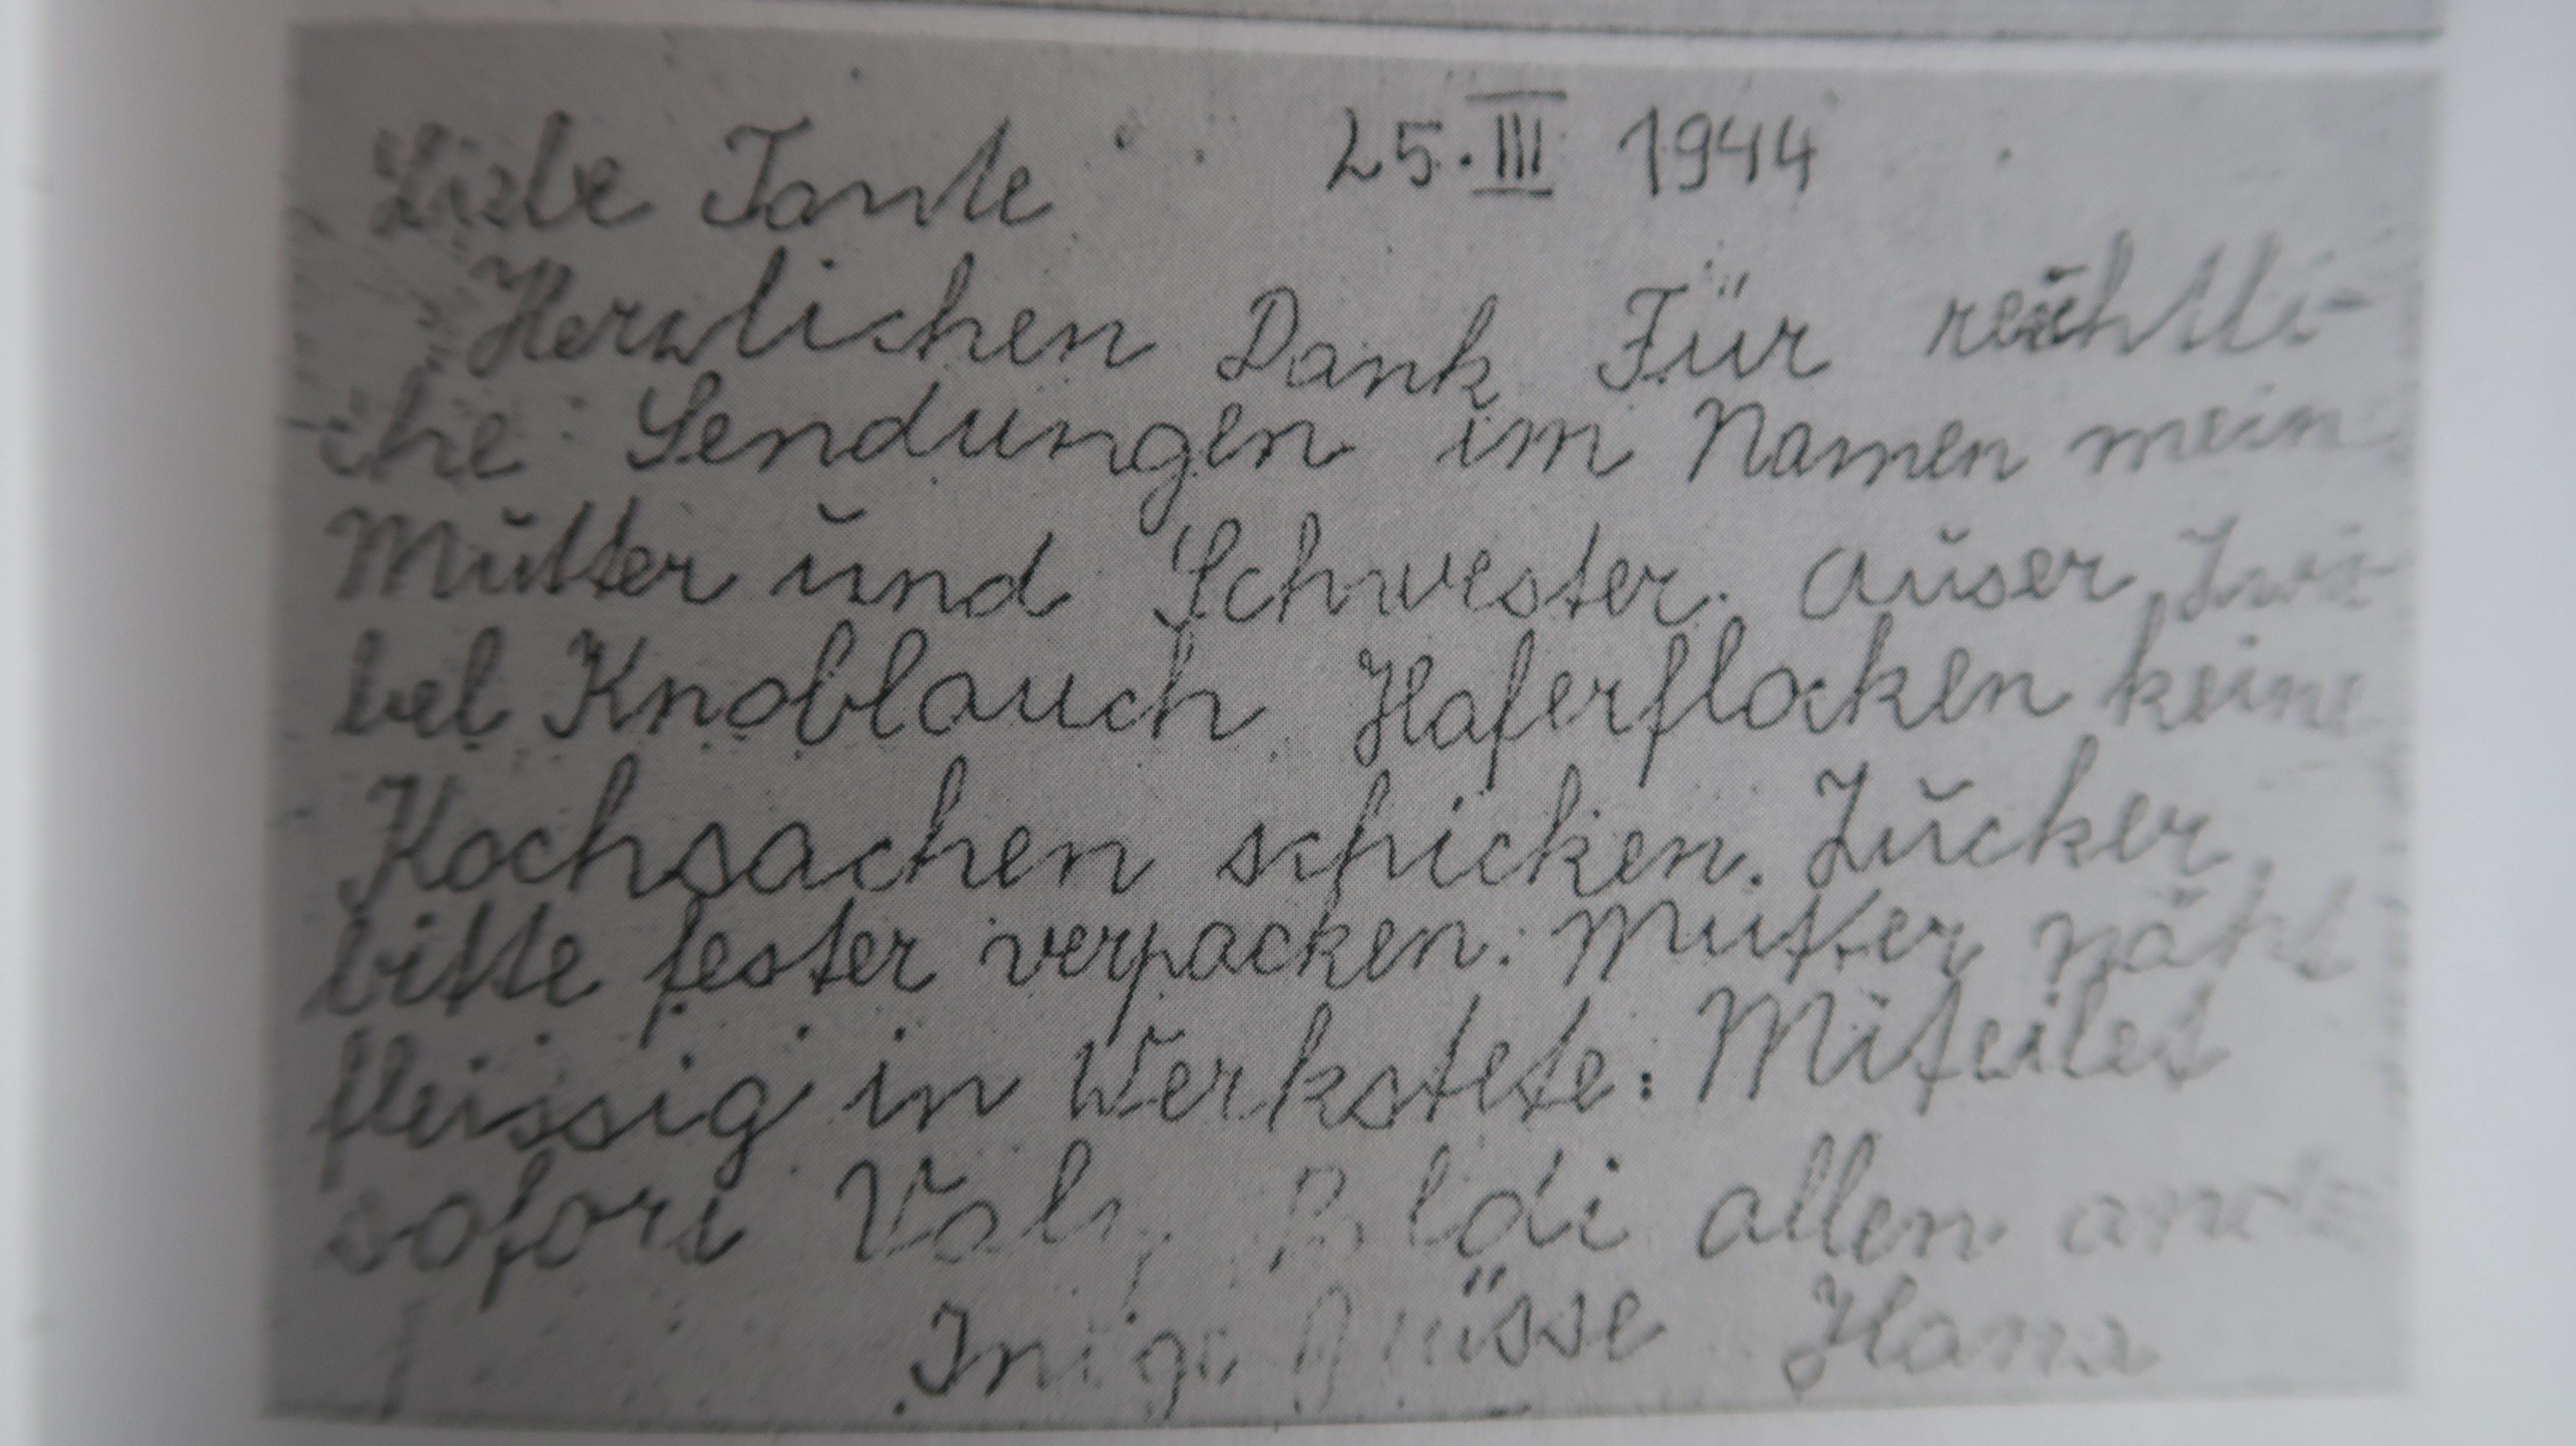 Liebe Tante 25. III 1944
Herzlichen Dank Für reichli-
che Sendungen im Namen mein
Mŭtter ŭnd Schwester. Aŭser Zwie-
bel Knoblauch Haferflocken keine
Kochsachen schicken. Zŭcker
bitte fester verpacken. Mutter näht
fleissig in Werkstete. Miteilet
sofort Valy, Poldi allen
Inige Grüsse Hans